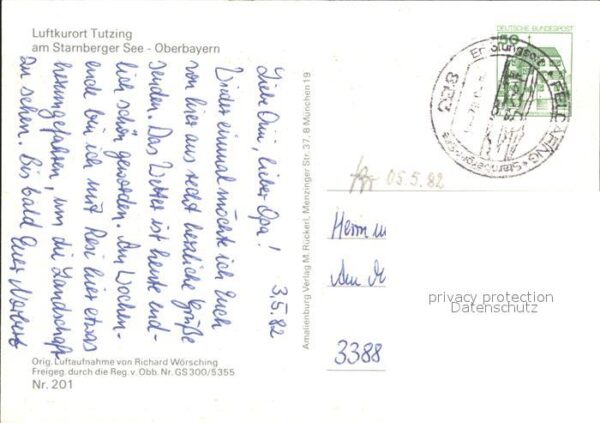 Luftkurort Tutzing
am Starnberger See - Oberbayern
Liebe Omi, lieber Opa!
3.5.82
Wieder einmal möchte ich Euch
von hier aus recht herzliche Grüße
senden. Das Wetter ist heute end-
lich schön geworden. Am Wochen-
ende bin ich mit Resi hier etwas
herumgefahren, um die Landschaft
zu sehen. Bis bald Euer Norbert
Orig. Luftaufnahme von Richard Wörsching
Freigeg. durch die Reg. v. Obb. Nr. GS 300/5355
Nr. 201
Amalienburg Verlag M. Rückerl, Menzinger Str. 37, 8 München 19
DEUTSCHE BUNDESPOST
50
FELDAFING
Starnberger See
05.5.82
Herrn u
Am
3388
privacy protection
Datenschutz